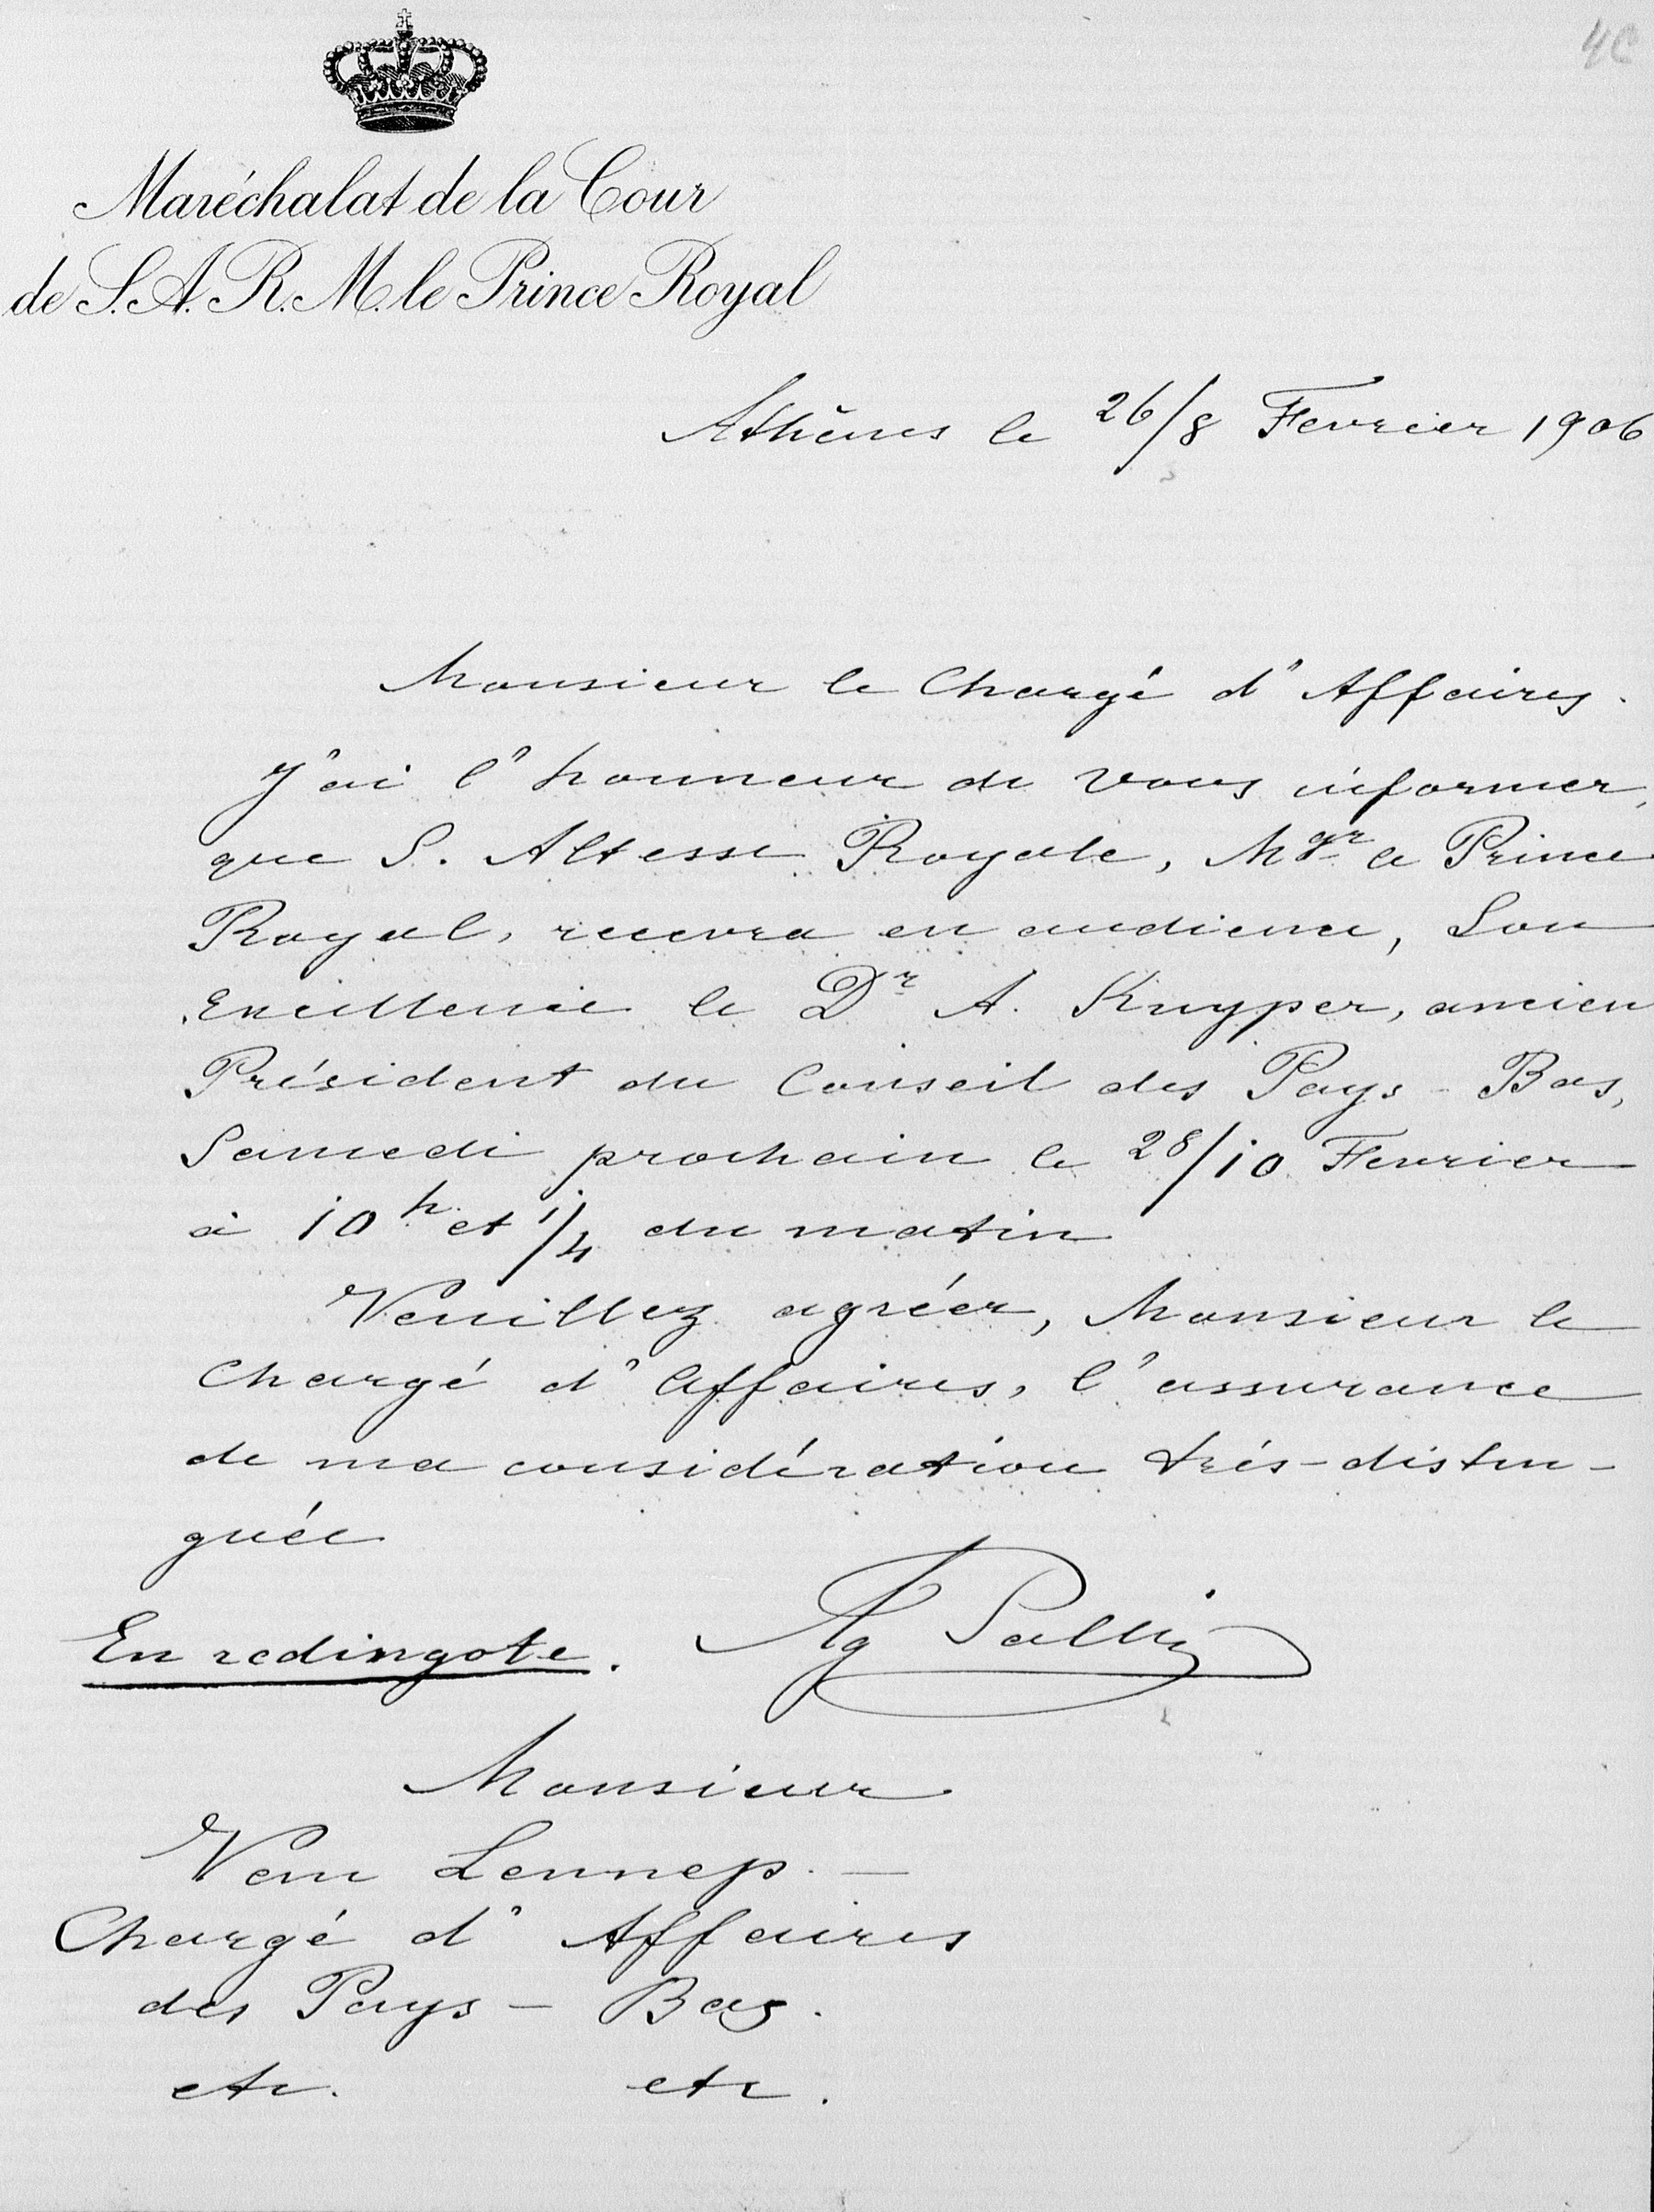 4C
Maréchalat de la Cour
de S. A. R. M. le Prince Royal
Athènes le 26/8 Fevrier 1906
Monsieur le Chargé d'Affaires.
J'ai l'honneur de vous informer,
que S. Altesse Royale, Mgr le Prince
Royal, recevra en audience, Son
Excellence le Dr A. Kuyper, ancien
Président du Conseil des Pays-Bas,
Samedi prochain le 28/10 Fevrier
à 10 h et 1/4 du matin
Veuillez agréer, Monsieur le
Chargé d'Affaires, l'assurance
de ma considération trés-distin-
guée
En redingote. Ag Pallis
Monsieur
Van Lennep. —
Chargé d'Affaires
des Pays-Bas.
etc. etc.